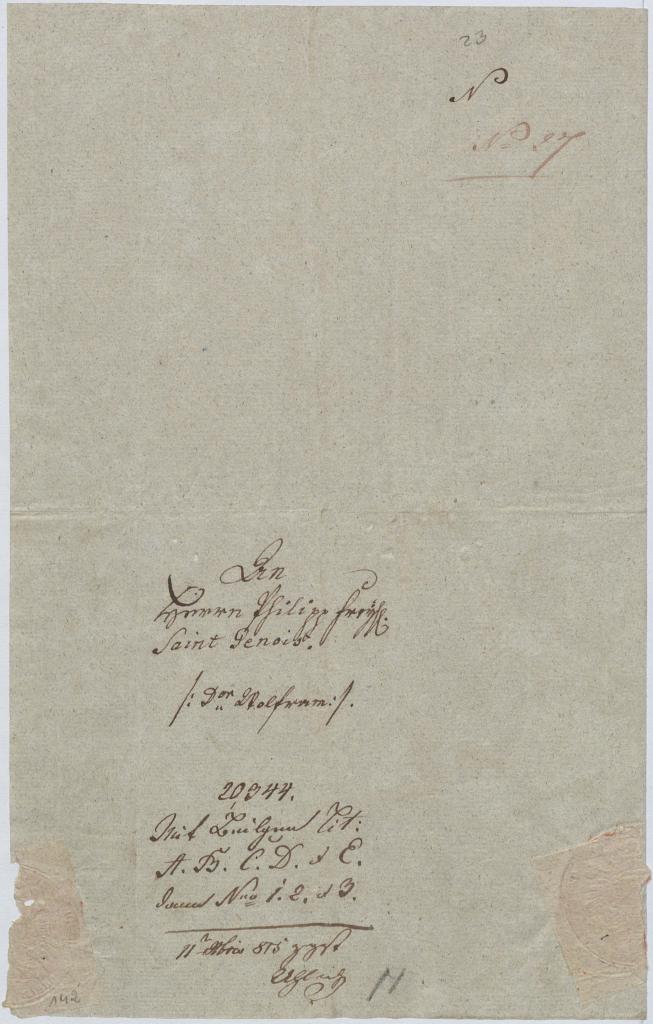 23
N
No 27
An
Herrn Philipp Freyh.
Saint Genois.
/: Dor Wolfram :/.
20344.
Mit Beilagen Lit:
A. B. C. D. & E.
dann Nro 1. 2. & 3.
11 815
11
142